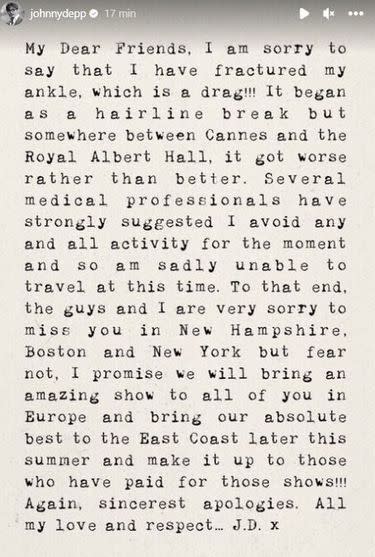 johnnydepp 17 min
My Dear Friends, I am sorry to
say that I have fractured my
ankle, which is a drag!!! It began
as a hairline break but
somewhere between Cannes and the
Royal Albert Hall, it got worse
rather than better. Several
medical professionals have
strongly suggested I avoid any
and all activity for the moment
and so am sadly unable to
travel at this time. To that end,
the guys and I are very sorry to
miss you in New Hampshire,
Boston and New York but fear
not, I promise we will bring an
amazing show to all of you in
Europe and bring our absolute
best to the East Coast later this
summer and make it up to those
who have paid for those shows!!!
Again, sincerest apologies. All
my love and respect... J.D. x